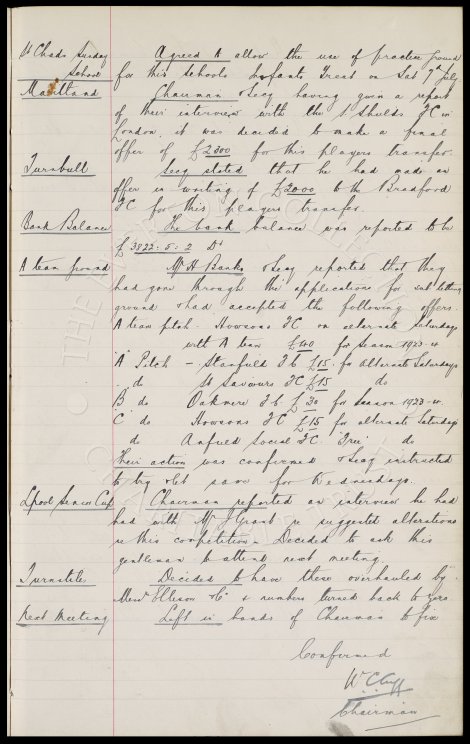 St Chads Sunday School
Agreed to allow the use of practice ground
for this Schools Infants Treat on Sat 7 July
Maitland
Chairman & Secy having given a report
of their interview with the S Shields FC in
London, it was decided to make a final
offer of £2300 for this players transfer.
Turnbull
Secy stated that he had made an
offer in writing of £2000 to the Bradford
FC for this players transfer.
Bank Balance
The bank balance was reported to be
£3822: 5: 2 Dr
A team ground
Mr H Banks & Secy reported that they
had gone through the applications for sub letting
ground & had accepted the following offers.
A team pitch - Howsons FC on alternate Saturdays
with A team £40 for season 1923-4.
A Pitch - Stanfield FC £15. for Alternate Saturdays
" do St Saviours FC £15 do
B do Oakmere FC £30 for season 1923-4.
C do Howsons FC £15 for alternate Saturdays
do Anfield Social FC "Free" do
Their action was confirmed & Secy instructed
to try & let same for Wednesdays.
Lpool Senior Cup
Chairman reported an interview he had
had with Mr J Grant re suggested alterations
re this competition - Decided to ask this
gentleman to attend next meeting
Turnstile
Decided to have these overhauled by
Messrs Ellison & Co & numbers turned back to zero
Next Meeting
Left in hands of Chairman to fix
Confirmed
W C Cuff
Chairman